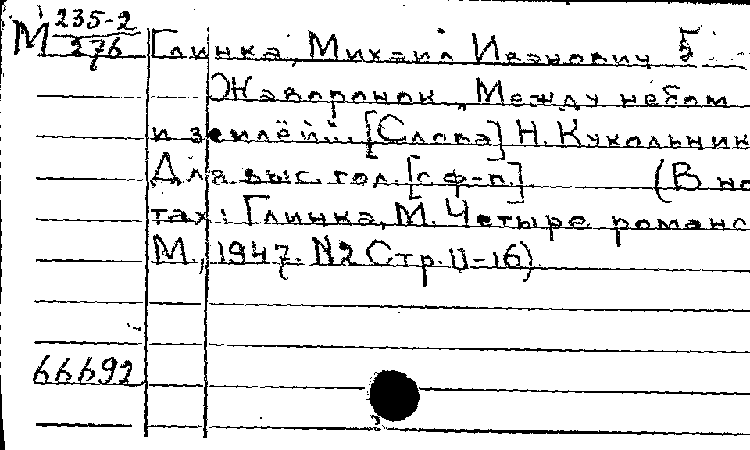 М 235-2
276
Глинка, Михаил Иванович
Жаворонок „Между небом
и землёй... [Слова] Н. Кукольник
Для выс. гол. [с ф-п.] (В но
тах: Глинка, М. Четыре романс
М., 1947. N2 Стр. 11-16)
66692